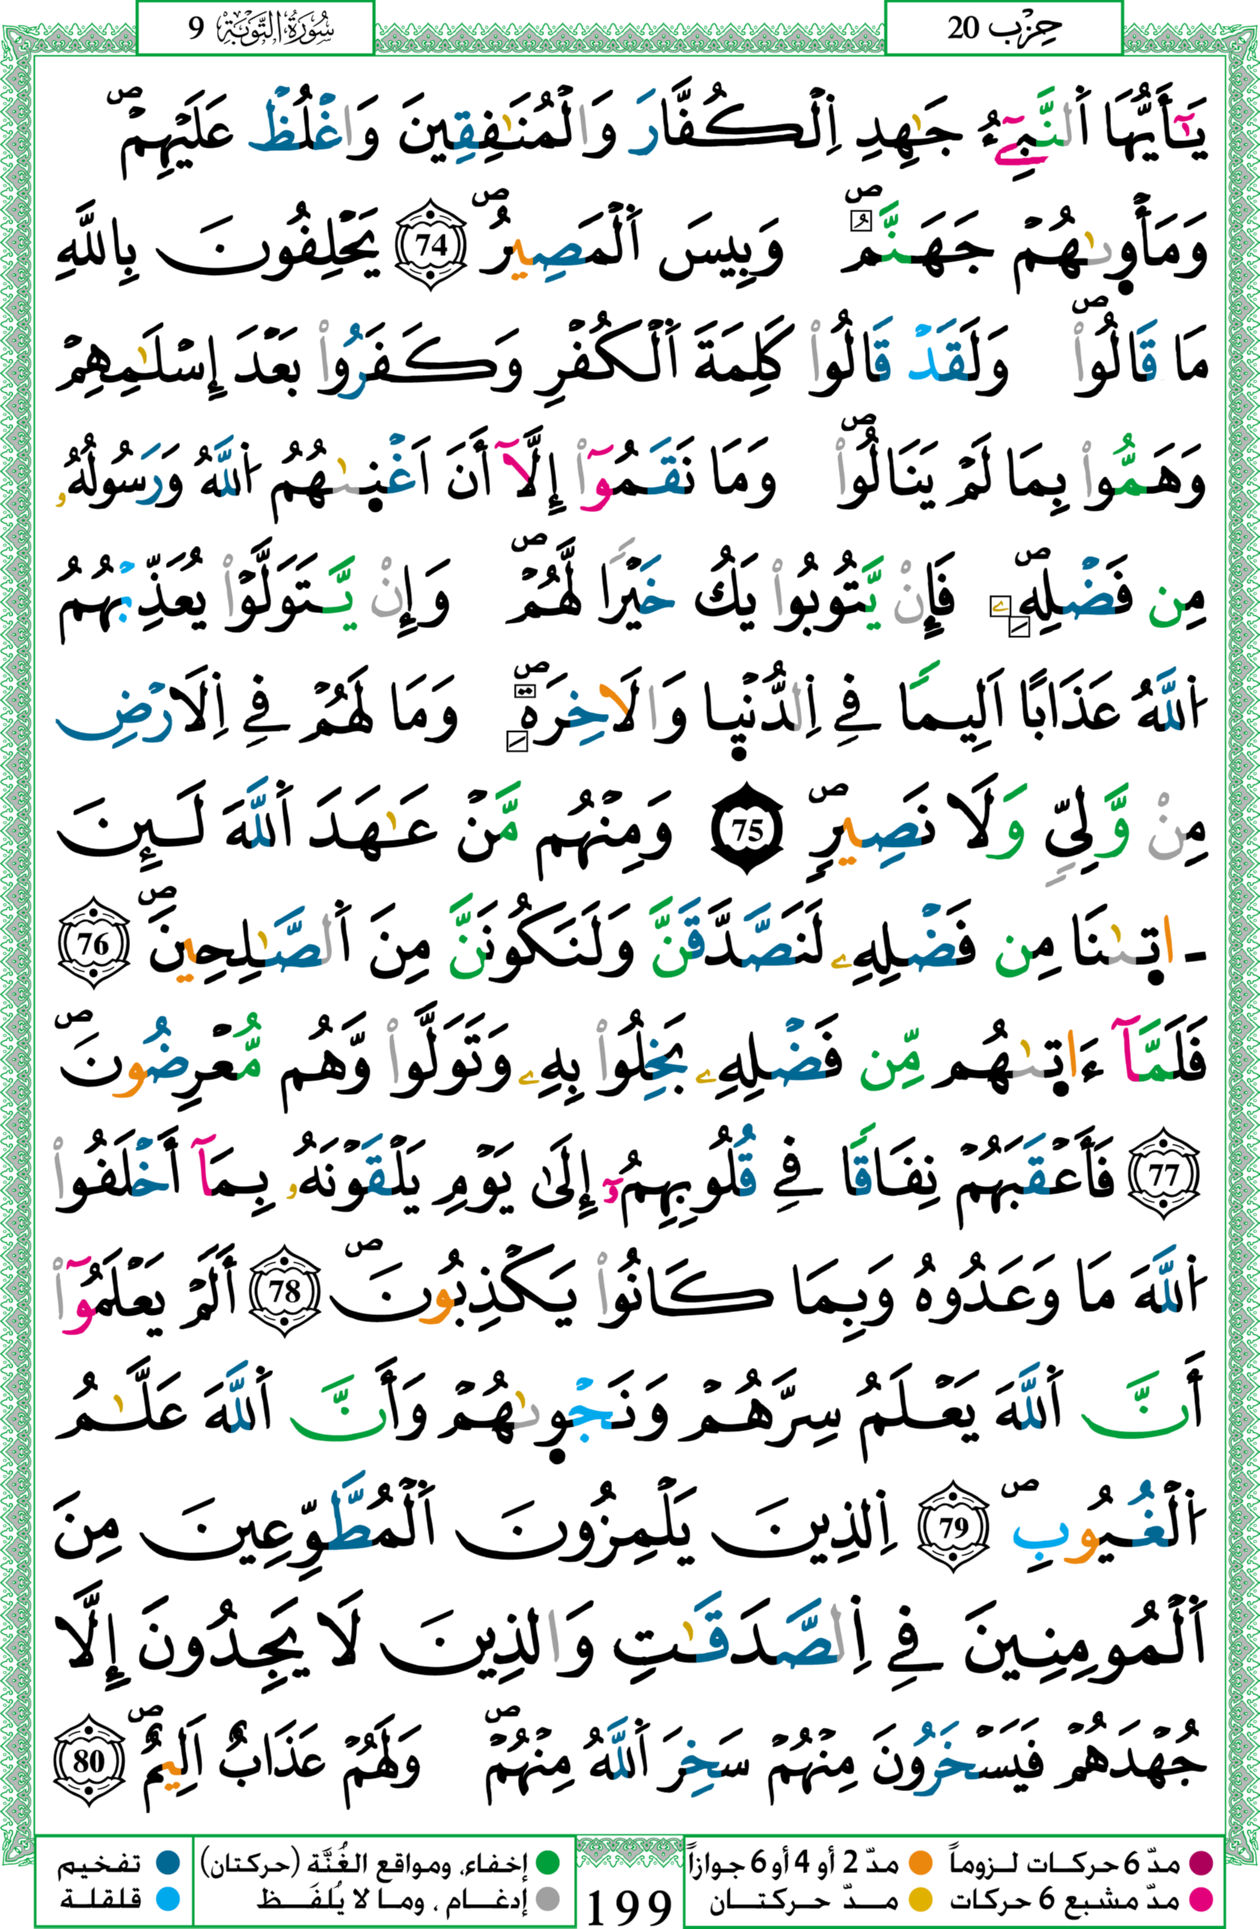 حِزْب 20
سُورَةُ التَّوْبَة 9
يَـٰٓأَيُّهَا اَ۬لنَّبِےٓءُ جَـٰهِدِ اِ۬لْكُفَّارَ وَالْمُنَـٰفِقِينَ وَاغْلُظْ عَلَيْهِمْۖ
وَمَأْو۪ىٰهُمْ جَهَنَّمُۖ وَبِيسَ اَ۬لْمَصِيرُۖ 74 يَحْلِفُونَ بِاللَّهِ
مَا قَالُواْۖ وَلَقَدْ قَالُواْ كَلِمَةَ اَ۬لْكُفْرِ وَكَفَرُواْ بَعْدَ إِسْلَـٰمِهِمْ
وَهَمُّواْ بِمَا لَمْ يَنَالُواْۖ وَمَا نَقَمُوٓاْ إِلَّآ أَنَ اَغْن۪ىٰهُمُ اُ۬للَّهُ وَرَسُولُهُۥ
مِن فَضْلِهِۦۖ فَإِنْ يَّتُوبُواْ يَكُ خَيْراً لَّهُمْۖ وَإِنْ يَّتَوَلَّوْاْ يُعَذِّبْهُمُ
اُ۬للَّهُ عَذَاباً اَلِيماً فِے اِ۬لدُّنْي۪ا وَالَاخِرَةِۖ وَمَا لَهُمْ فِے اِ۬لَارْضِ
مِنْ وَّلِيّٖ وَلَا نَصِيرٖۖ 75 وَمِنْهُم مَّنْ عَـٰهَدَ اَ۬للَّهَ لَـئِنَ
-ات۪ىٰنَا مِن فَضْلِهِۦ لَنَصَّدَّقَنَّ وَلَنَكُونَنَّ مِنَ اَ۬لصَّـٰلِحِينَۖ 76
فَلَمَّآ ءَات۪ىٰهُم مِّن فَضْلِهِۦ بَخِلُواْ بِهِۦ وَتَوَلَّواْ وَّهُم مُّعْرِضُونَۖ
77 فَأَعْقَبَهُمْ نِفَاقاً فِے قُلُوبِهِمُۥٓ إِلَىٰ يَوْمِ يَلْقَوْنَهُۥ بِمَآ أَخْلَفُواْ
اُ۬للَّهَ مَا وَعَدُوهُ وَبِمَا كَانُواْ يَكْذِبُونَۖ 78 أَلَمْ يَعْلَمُوٓاْ
أَنَّ اَ۬للَّهَ يَعْلَمُ سِرَّهُمْ وَنَجْو۪ىٰهُمْ وَأَنَّ اَ۬للَّهَ عَلَّـٰمُ
اُ۬لْغُيُوبِۖ 79 اِ۬لذِينَ يَلْمِزُونَ اَ۬لْمُطَّوِّعِينَ مِنَ
اَ۬لْمُومِنِينَ فِے اِ۬لصَّدَقَـٰتِ وَالذِينَ لَا يَجِدُونَ إِلَّا
جُهْدَهُمْ فَيَسْخَرُونَ مِنْهُمْ سَخِرَ اَ۬للَّهُ مِنْهُمْۖ وَلَهُمْ عَذَابٌ اَلِيمٌۖ 80
مدّ 6 حركات لـزوماً
مدّ 2 أو 4 أو 6 جوازاً
مدّ مشبع 6 حركات
مـــدّ حركتــان
199
إخفاء، ومواقع الغُنَّة (حركتان)
إدغام ، وما لا يُلفَـظ
تفخيم
قلقلة